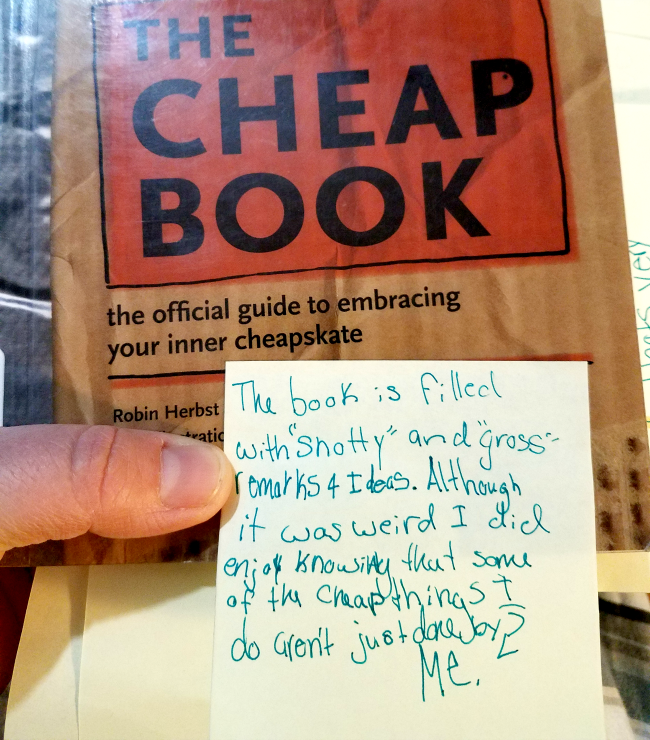 THE
CHEAP
BOOK
the official guide to embracing
your inner cheapskate
Robin Herbst
The book is filled
with "Snotty" and "gross"
remarks & Ideas. Although
it was weird I did
enjoy knowing that some
of the cheap things I
do aren't just done by
Me.
very